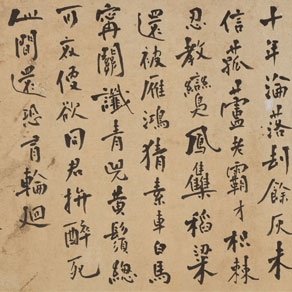 十年淪落劫餘灰未
信菰蘆老霸才枳棘
忍教鸞鳳集稻粱
還被雁鴻猜素車白馬
甯關讖青兕黃鬚總
可哀便欲同君拚醉死
此間還恐有輪迴